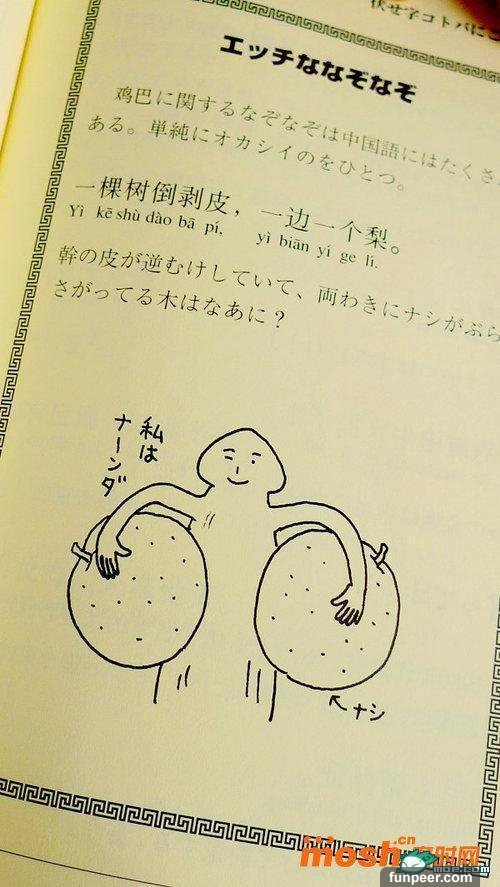 伏せ字コトバにこ
エッチななぞなぞ
鸡巴に関するなぞなぞは中国語にはたくさ
ある。単純にオカシイのをひとつ。
一棵树倒剥皮，一边一个梨。
Yì kē shù dào bā pí, yì biān yí ge lí.
幹の皮が逆むけしていて、両わきにナシがぶら
さがってる木はなあに？
私は
ナーンダ
↖ナシ
mosh.cn
funpeer.com